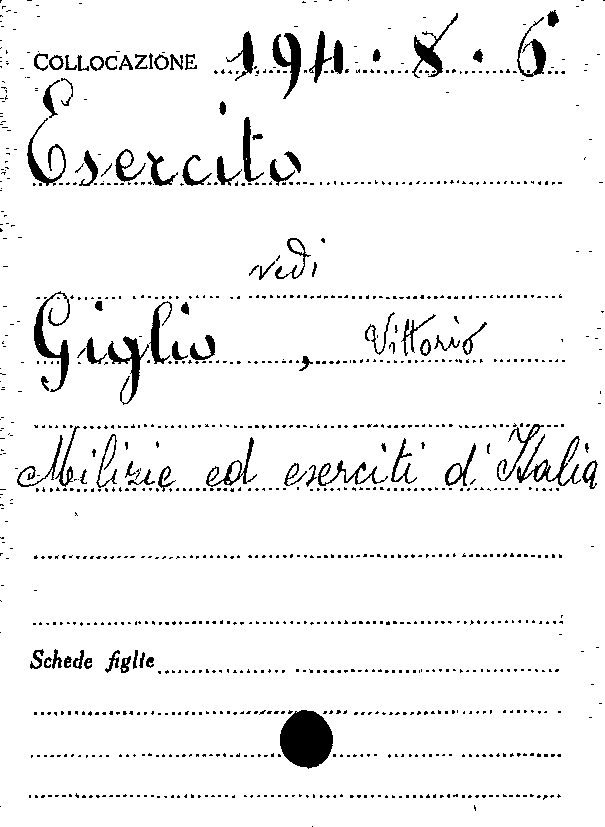 COLLOCAZIONE 194.8.6
Esercito
vedi
Giglio, Vittorio
Milizie ed eserciti d'Italia
Schede figlie